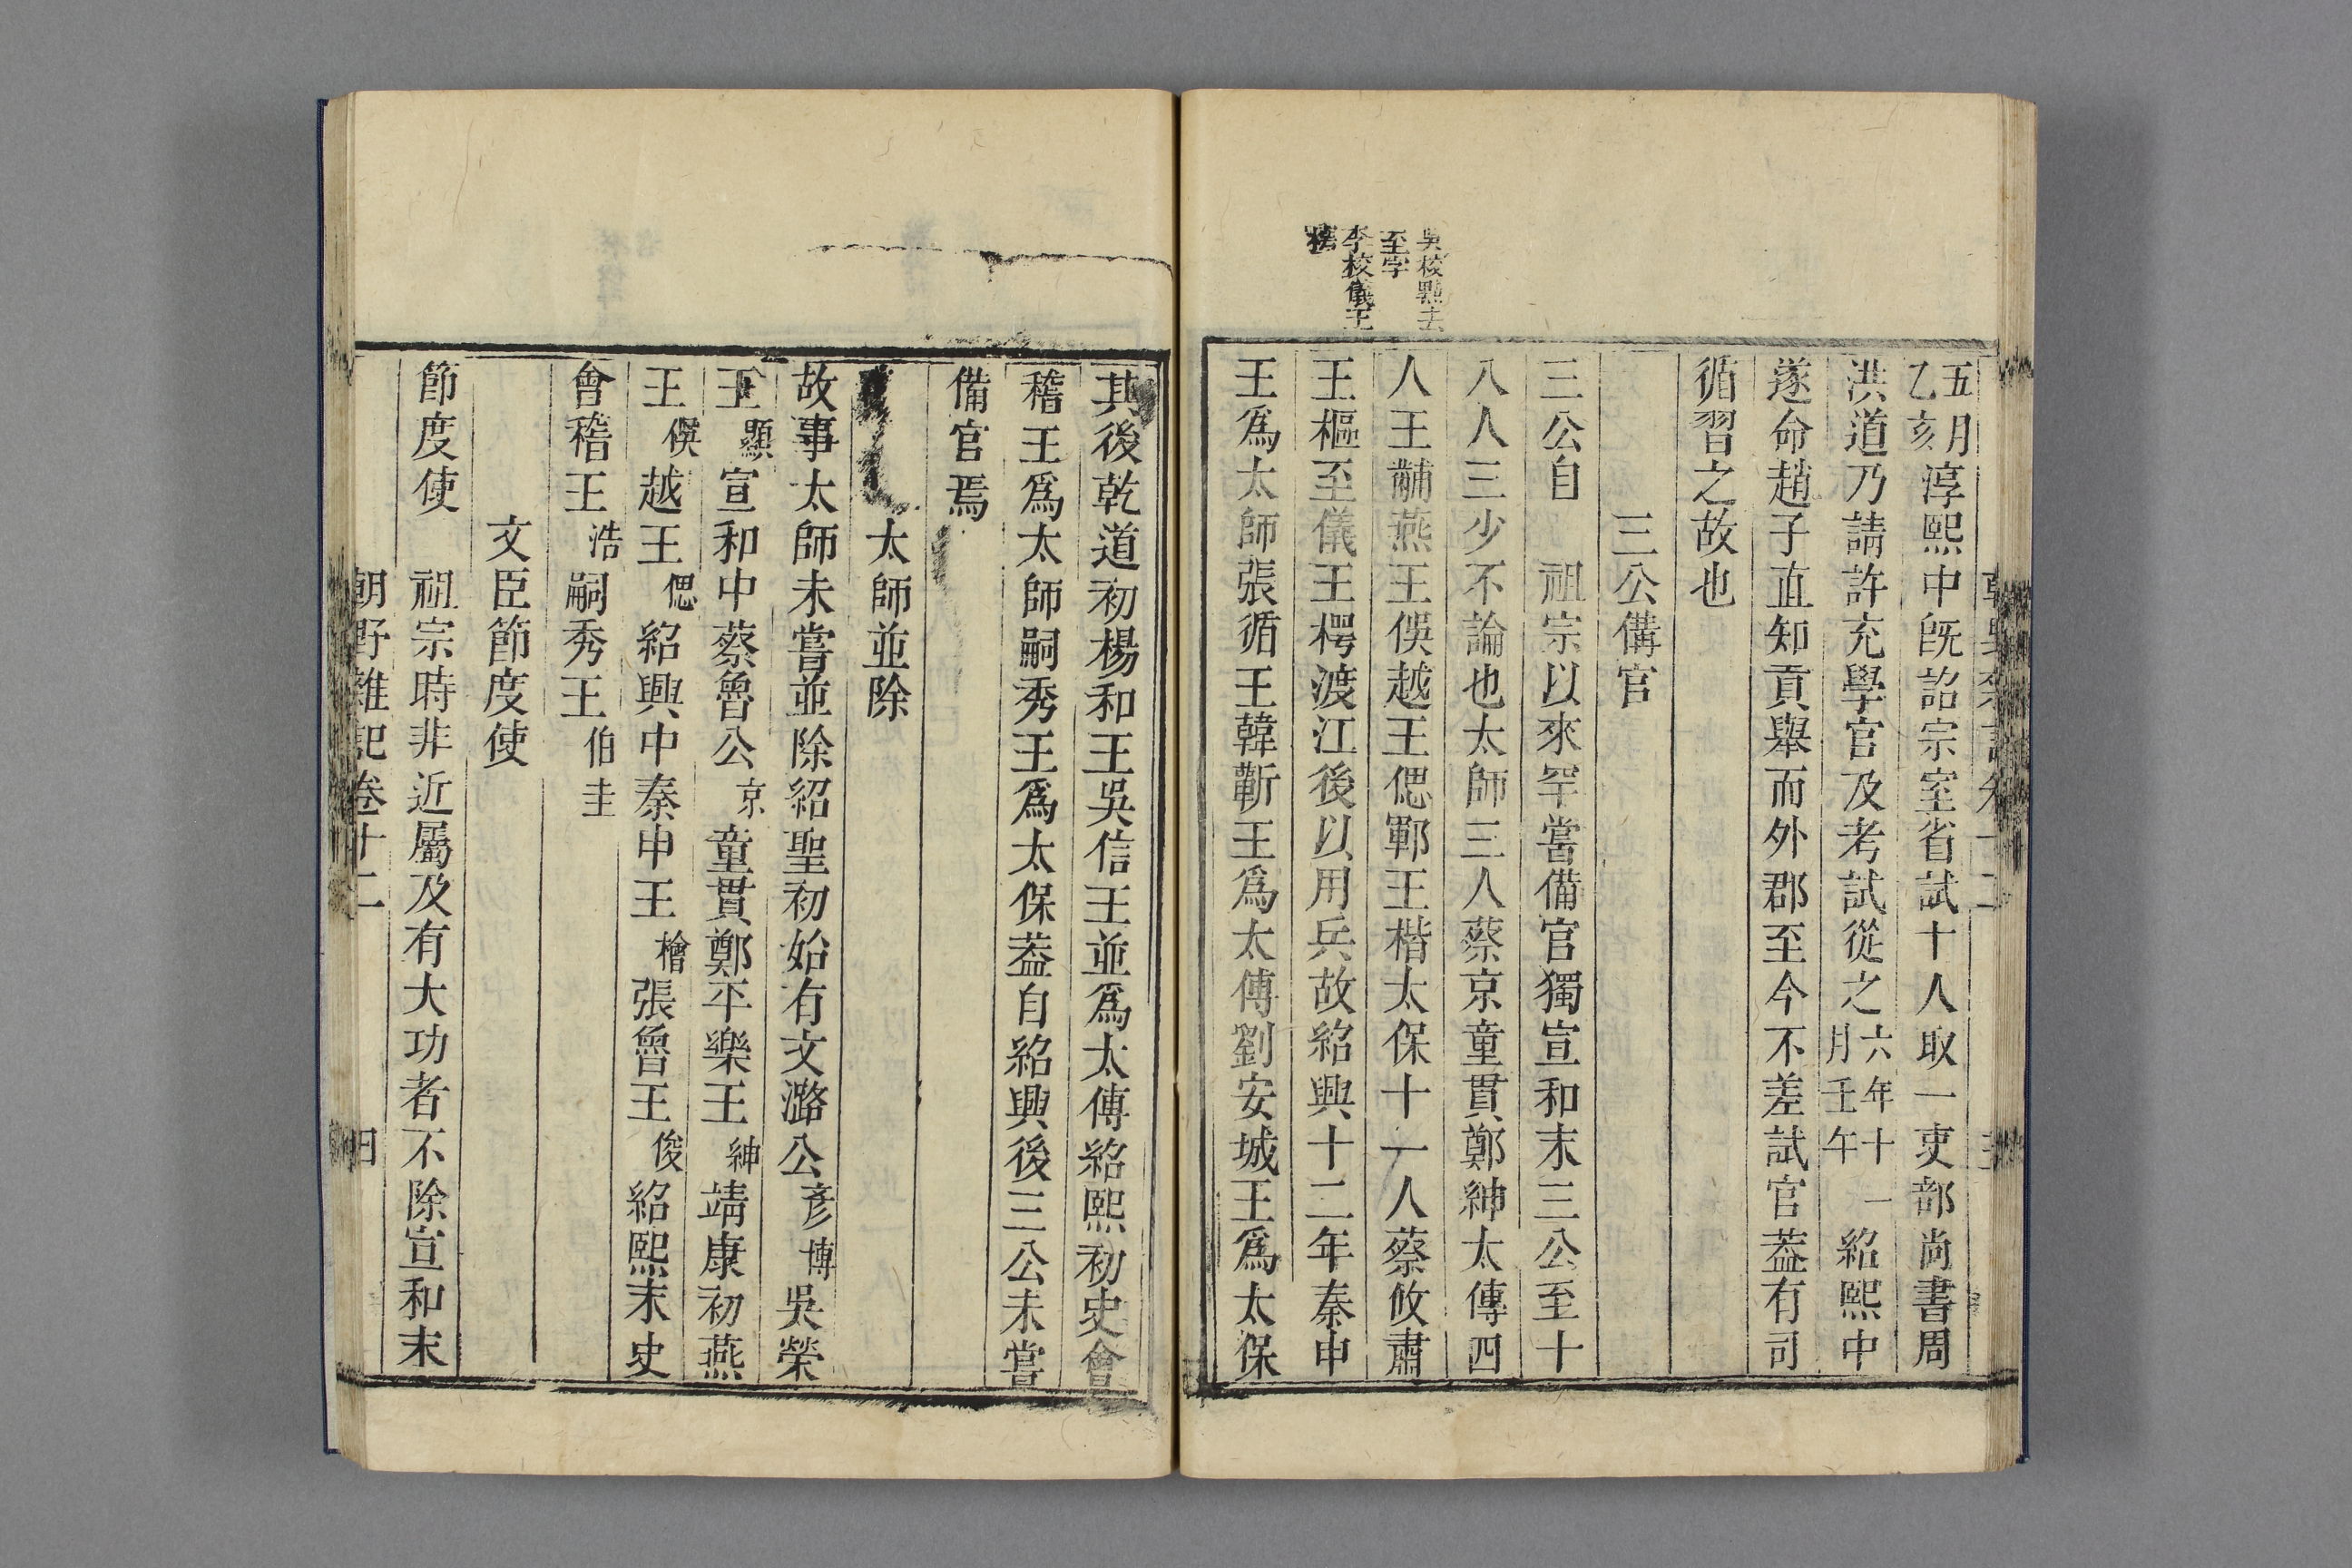 吳校點去
至字
李校儀王
五月乙亥淳熙中旣詔宗室省試十人取一吏部尚書周
洪道乃請許充學官及考試從之六年十一月壬午紹熙中
遂命趙子直知貢舉而外郡至今不差試官葢有司
循習之故也
三公備官
三公自 祖宗以來罕嘗備官獨宣和末三公至十
八人三少不論也太師三人蔡京童貫鄭紳太傅四
人王黼燕王俁越王偲鄆王楷太保十一人蔡攸肅
王樞至儀王樗渡江後以用兵故紹興十二年秦申
王爲太師張循王韓蘄王爲太傅劉安城王爲太保
其後乾道初楊和王吳信王並爲太傅紹熙初史會
稽王爲太師嗣秀王爲太保葢自紹興後三公未嘗
備官焉
太師並除
故事太師未嘗並除紹聖初始有文潞公彥博吳榮
王顥宣和中蔡魯公京童貫鄭平樂王紳靖康初燕
王俁越王偲紹興中秦申王檜張魯王俊紹熙末史
會稽王浩嗣秀王伯圭
文臣節度使
節度使 祖宗時非近屬及有大功者不除宣和末
朝野雜記卷十二 四